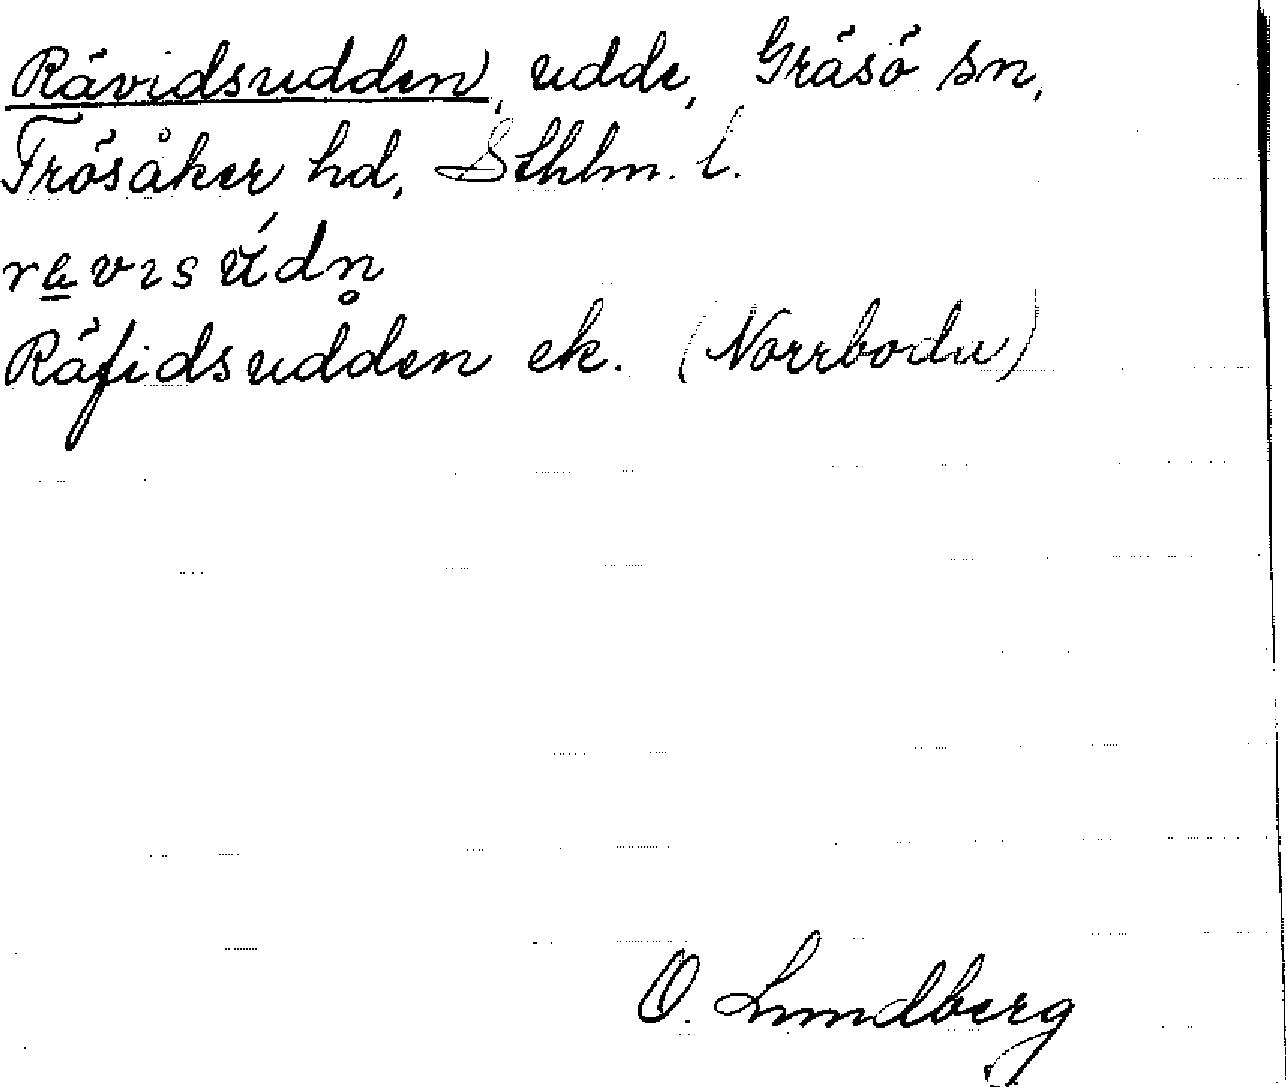 Rävidsudden, udde, Gräsö sn,
Frösåker hd, Sthlm. l.
Räfidsudden ek. (Norrboda)
O. Lundberg